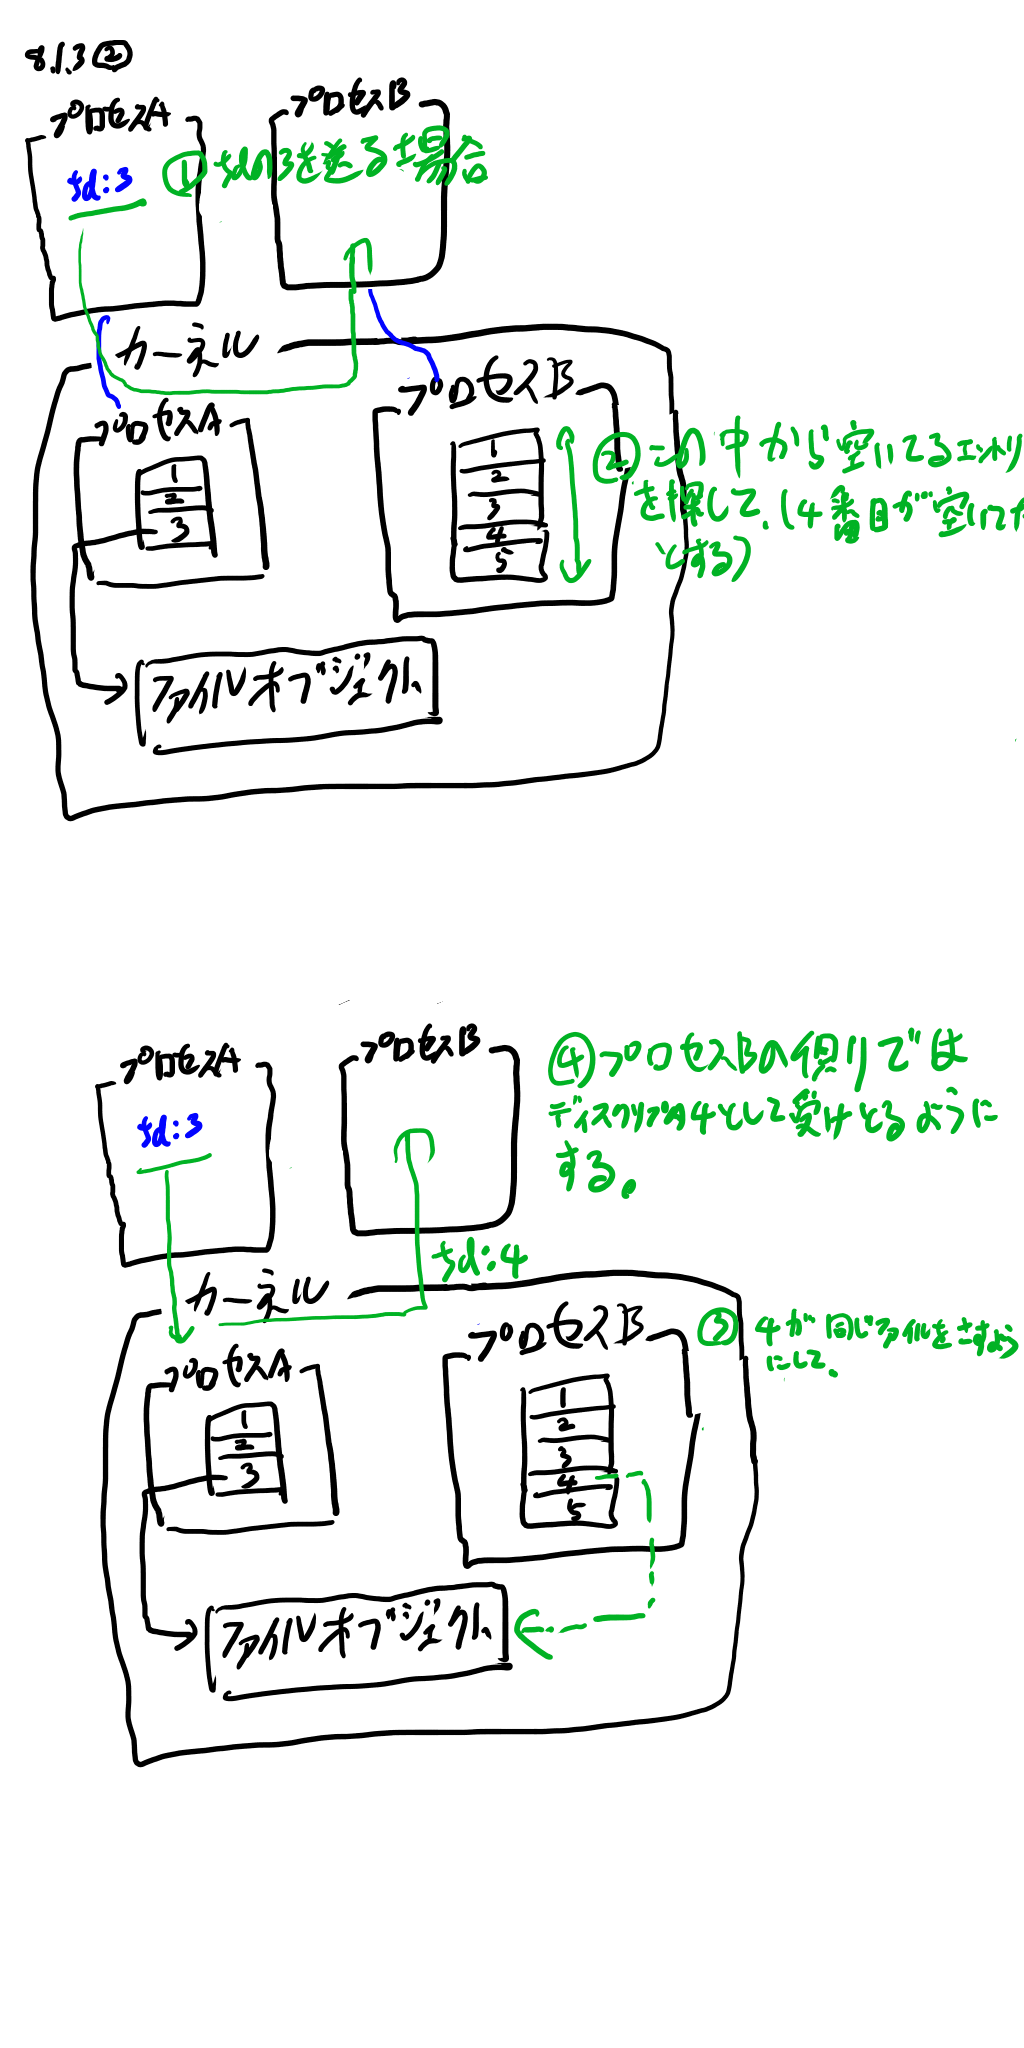 8.1.3②
プロセスA
プロセスB
fd:3
①fdの3を送る場合
カーネル
プロセスA
1
2
3
プロセスB
1
2
3
4
5
②この中から空いてるエントリ
を探して、(4番目が空いてた
とする)
ファイルオブジェクト
プロセスA
プロセスB
fd:3
④プロセスBの側では
ディスクリプタ4として受けとるように
する。
fd:4
カーネル
プロセスA
1
2
3
プロセスB
1
2
3
4
5
③ 4が同じファイルをさすよう
にして、
ファイルオブジェクト